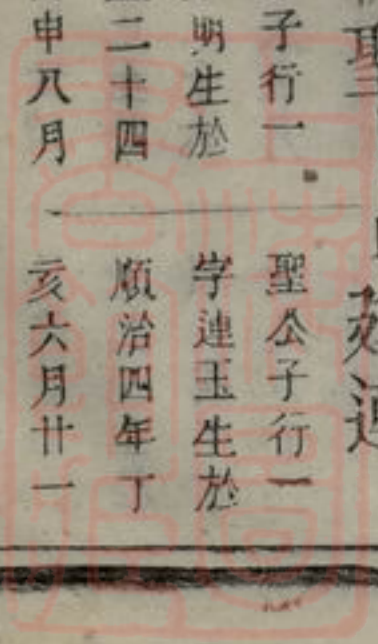 聖
子行一
明生於
二十四
申八月
廷連
聖公子行一
字連玉生於
順治四年丁
亥六月廿一